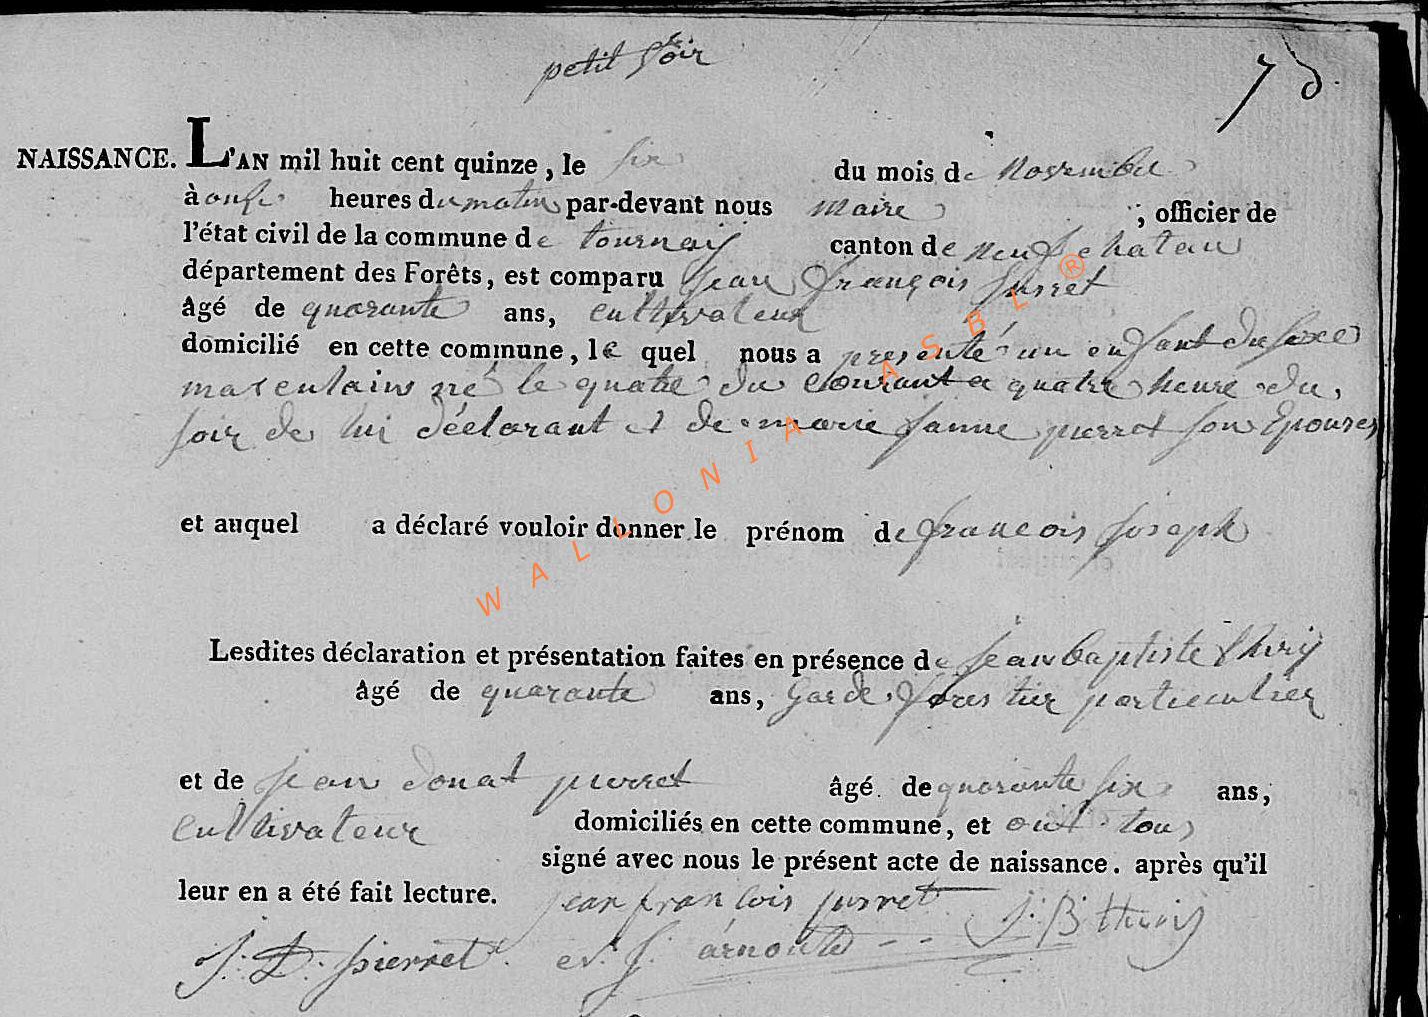 petit Voir
7 d.
NAISSANCE. L'AN mil huit cent quinze, le six du mois de novembre
à onse heures du matin par-devant nous maire, officier de
l'état civil de la commune de tournay canton de neufchateau
département des Forêts, est comparu Jean François purret
âgé de quarante ans, cultivateur
domicilié en cette commune, le quel nous a presenté un enfant du sexe
masculain né le quatre du courant a quatre heure du
soir de lui déclarant et de marie Janne pierret son Epouse
et auquel a déclaré vouloir donner le prénom de francois Joseph
Lesdites déclaration et présentation faites en présence de Jean baptiste thiry
âgé de quarante ans, garde forestier particulier
et de Jean donat pierret âgé de quarante six ans,
Cultivateur domiciliés en cette commune, et ont tous
signé avec nous le présent acte de naissance. après qu'il
leur en a été fait lecture. jean francois purret J: B: thiry
J: D: pierret J. arnould
WALLONIA ASBL ®